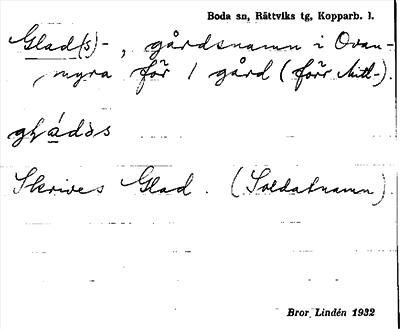 Boda sn, Rättviks tg, Kopparb. l.
Glad(s)-, gårdsnamn i Ovan-
myra för 1 gård (förr Mitt-).
gládàs
Skrives Glad. (Soldatnamn).
Bror Lindén 1932